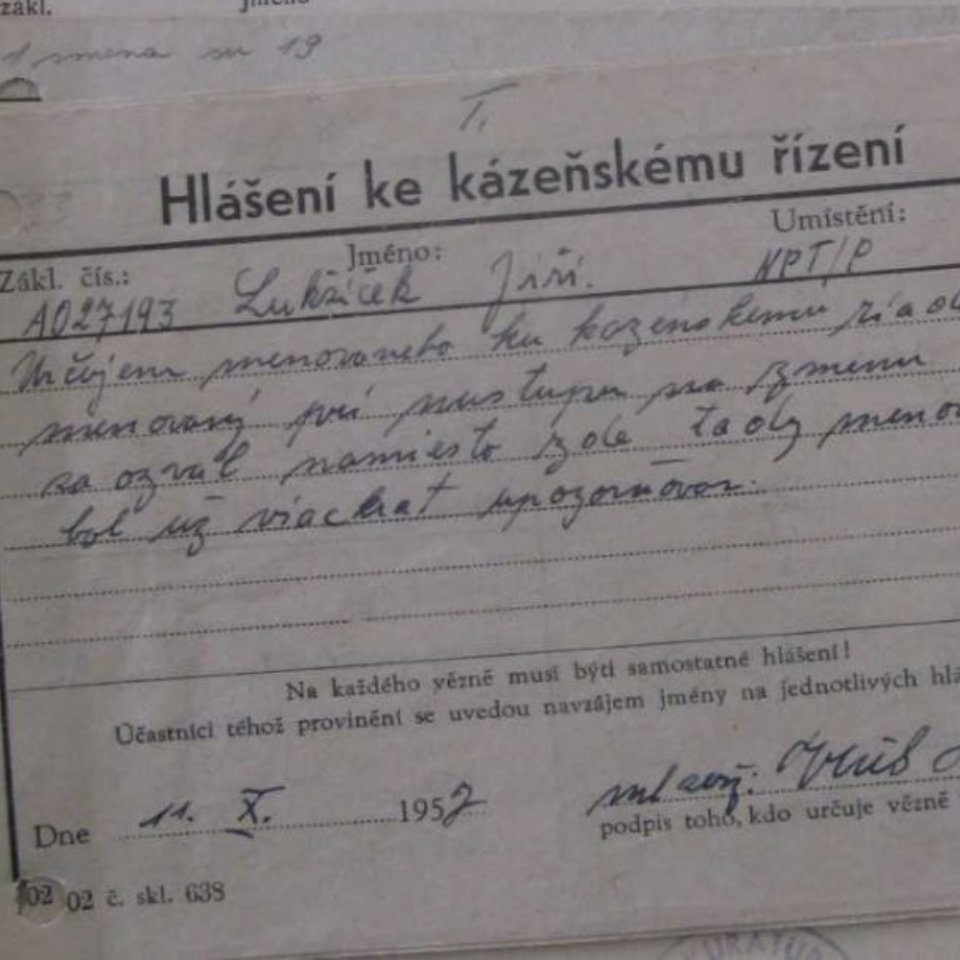 zákl. jméno
1 smena 19
I.
Hlášení ke kázeňskému řízení
Zákl. čís.: Jméno: Umístění:
A027193 Lukšíček Jiří. NPT/P
Určujem menovaneho ku kázenskemu
menovaný pri nastupu na zmenu
sa ozval namiesto zde tady
bol už viackrat
Na každého vězně musí býti samostatné hlášení!
Účastníci téhož provinění se uvedou navzájem jmény na jednotlivých hlá
Dne 11. X. 1957
podpis toho, kdo určuje vězně
02 02 č. skl. 638